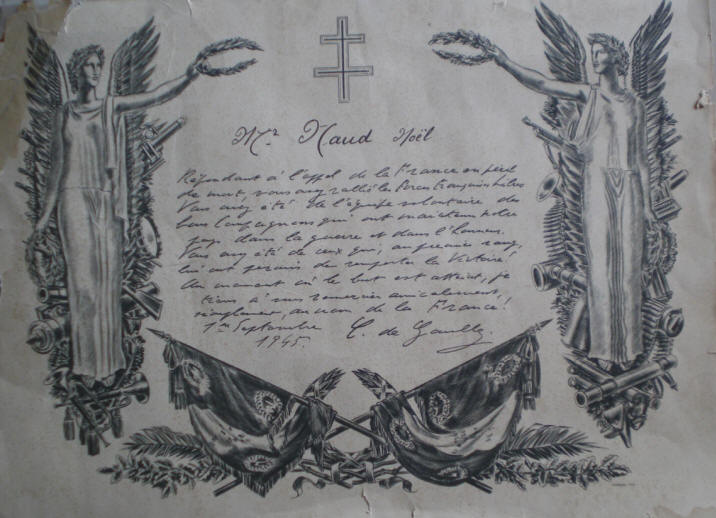 Mr Naud Noël
Répondant à l'appel de la France en péril
de mort, vous avez rallié les Forces françaises libres
Vous avez été de l'équipe volontaire des
bons compagnons qui ont maintenu notre
pays dans la guerre et dans l'honneur.
Vous avez été de ceux qui, au premier rang,
lui ont permis de remporter la Victoire!
Au moment où le but est atteint, je
tiens à vous remercier amicalement,
simplement, au nom de la France!
1er Septembre
1945.
C. de Gaulle.